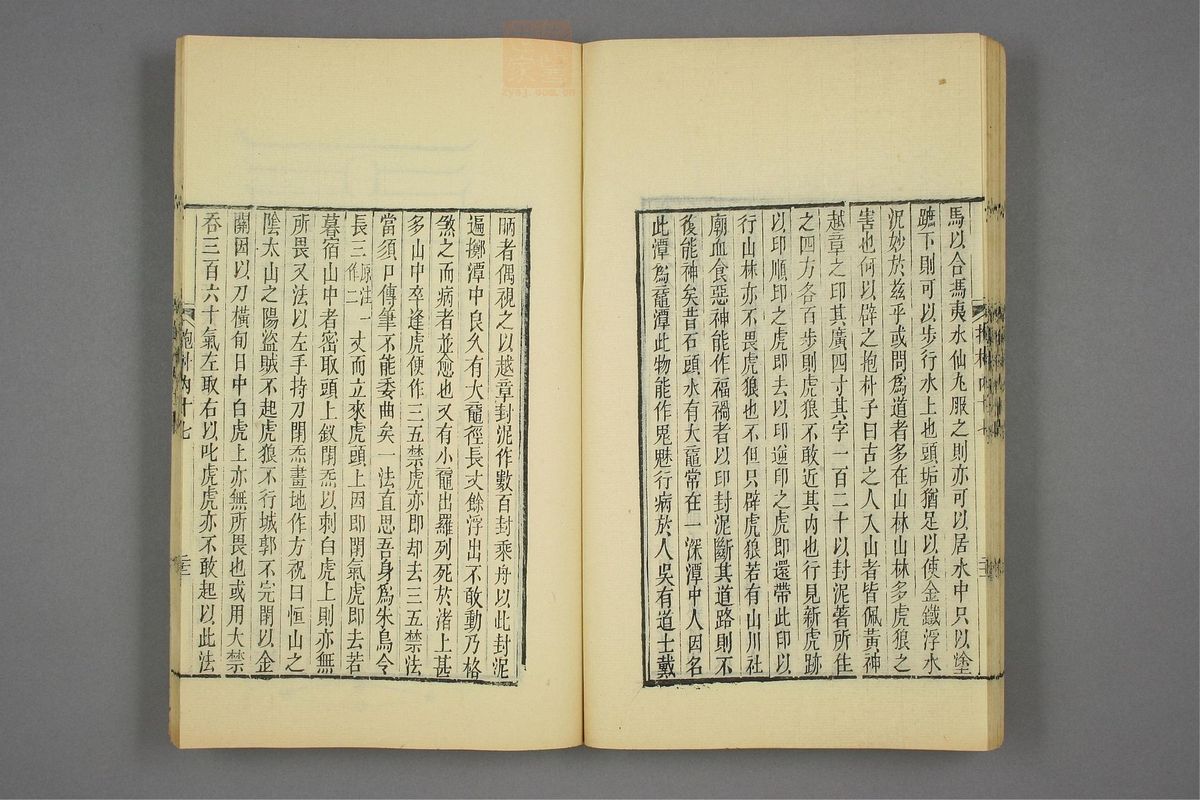 馬以合馮夷水仙丸服之則亦可以居水中只以塗
蹠下則可以步行水上也頭垢猶足以使金鐵浮水
況妙於茲乎或問為道者多在山林山林多虎狼之
害也何以辟之抱朴子曰古之人入山者皆佩黃神
越章之印其廣四寸其字一百二十以封泥著所住
之四方各百步則虎狼不敢近其內也行見新虎跡
以印順印之虎即去以印逆印之虎即還帶此印以
行山林亦不畏虎狼也不但只辟虎狼若有山川社
廟血食惡神能作福禍者以印封泥斷其道路則不
復能神矣昔石頭水有大黿常在一深潭中人因名
此潭為黿潭此物能作鬼魅行病於人吳有道士戴
昞者偶視之以越章封泥作數百封乘舟以此封泥
遍擲潭中良久有大黿徑長丈餘浮出不敢動乃格
煞之而病者並愈也又有小黿出羅列死於渚上甚
多山中卒逢虎便作三五禁虎亦即却去三五禁法
當須口傳筆不能委曲矣一法直思吾身為朱鳥令
長三原注一作二丈而立來虎頭上因即閉氣虎即去若
暮宿山中者密取頭上釵閉炁以刺白虎上則亦無
所畏又法以左手持刀閉炁畫地作方祝曰恒山之
陰太山之陽盜賊不起虎狼不行城郭不完閉以金
關因以刀橫旬日中白虎上亦無所畏也或用大禁
吞三百六十氣左取右以叱虎虎亦不敢起以此法
抱朴內十七